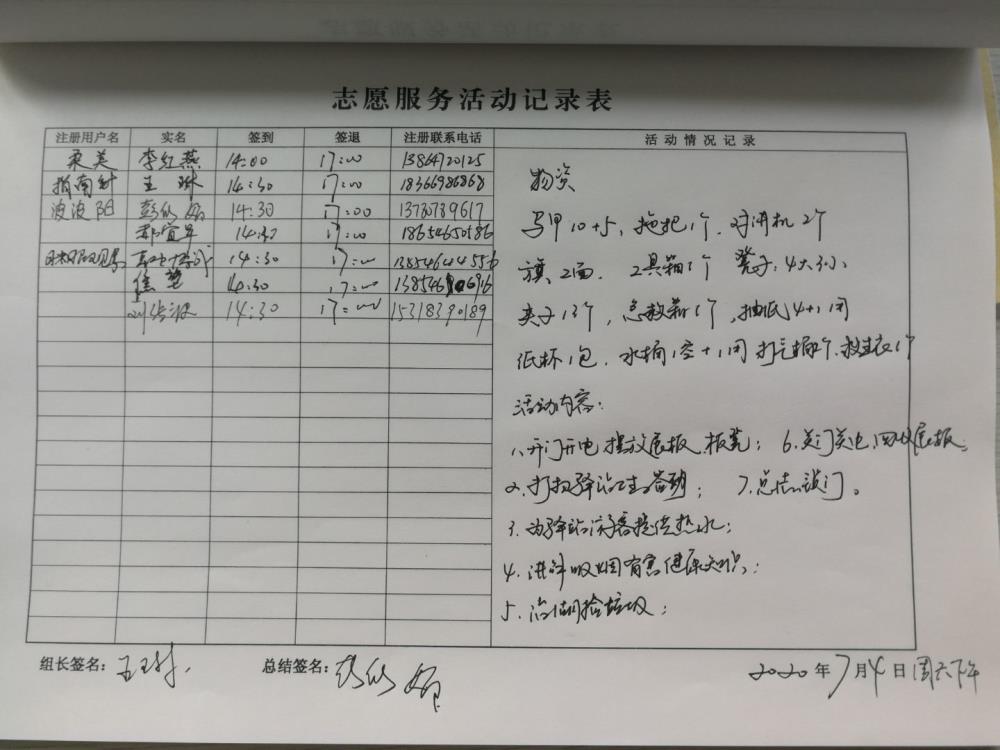 志愿服务活动记录表
注册用户名 实名 签到 签退 注册联系电话 活动情况记录
柔美 李红燕 14:00 17:00 13864720125
指南针 王琳 14:30 17:00 18366986868
波波阳 彭 14:30 17:00 13780789617
郝宜军 14:30 17:00 18654650586
14:30 17:00
焦 14:30 17:00
刘 14:30 17:00 15318390189
物资
马甲10+5,拖把1个.对讲机2个
旗2面. 工具箱1个 凳子:4大3小、
夹子13个,急救箱1个,抽纸4+1闭
纸杯1包.水桶1空+1闭 打气桶2个.救生衣1个
活动内容:
1、开门开电 摆放展板、板凳; 6.关门关电,回收展板.
2.打扫驿站卫生; 7.总结锁门。
3.为驿站游客提供热水;
4.进行吸烟有害健康知识;
5.沿湖捡垃圾;
组长签名:王琳. 总结签名:
2020年7月4日周六下午